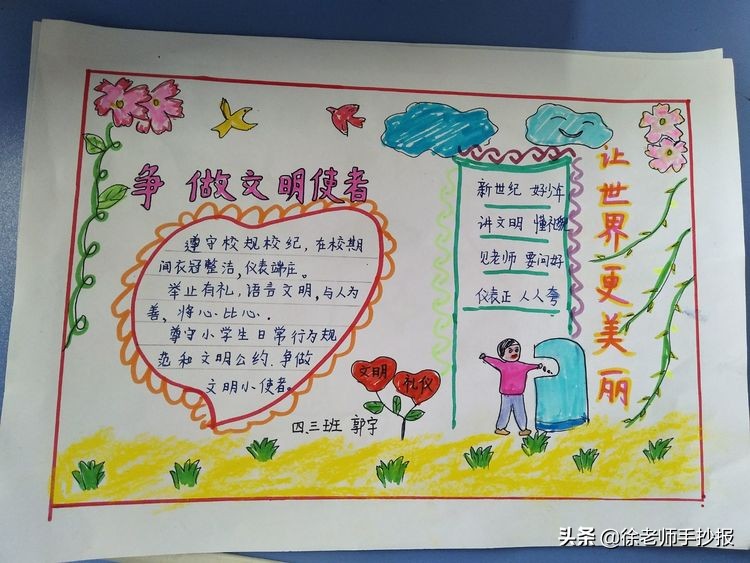 争做文明使者
遵守校规校纪，在校期
间衣冠整洁，仪表端庄。
举止有礼，语言文明，与人为
善，将心比心．
尊守小学生日常行为规
范和文明公约．争做
文明小使者。
文明
礼仪
四.三班 郭宇
新世纪 好少年
讲文明 懂礼貌
见老师 要问好
仪表正 人人夸
让世界更美丽
头条 @徐老师手抄报